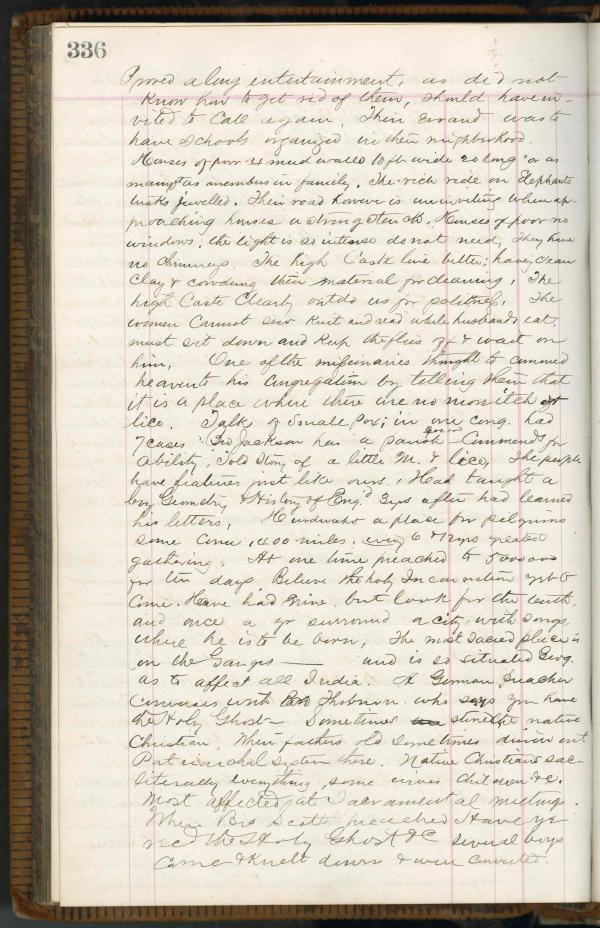 336
Proved a long entertainment, as did not
know how to get rid of them, should have in-
vited to call again. Their errand was to
have schools organized in their neighborhood.
Houses of poor 4 mud walls 10 ft wide 20 long or as
many as members in family. The rich ride on Elephants
tusks jewelled. Their road however is uninviting when ap-
proaching houses a strong stench. Houses of poor no
windows, the light is so intense do not need, They have
no chimneys. The high Caste live better; have clean
clay & cowdung their material for cleaning, The
high Caste clearly outdo us for politness, The
women cannot sew knit and read while husbands eat,
must sit down and keep the flies off & wait on
him, One of the missionaries thought to commend
heaven to his congregation by telling them that
it is a place where there are no more itch or
lice. Talk of Small Pox; in one cong. had
7 cases Bro Jackson has a parish Commends for
ability, Told story of a little M. & lice, The people
have features just like ours. Had taught a
boy Geometry & History of Eng. 3 yrs after had learned
his letters, a place for pilgrims
some come 1400 miles, every 6 & 12 yrs greatest
gathering. At one time preached to 5000000
for ten days Believe the holy Incarnation yet to
come. Have had nine but look for the tenth,
and once a yr surround a city with songs
where he is to be born, The most sacred place is
on the Ganges — and is so situated Geog.
as to affect all India. A German preacher
converses with Thoburn who says you have
the Holy Ghost— Sometimes native
Christian. When fathers old sometimes driven out
Patriarchal system there. Native Christians sac-
literally everything, some wives children &c.
Most affected at Sacramental meetings.
When Bro Scott preached Have ye
recd the Holy Ghost &C several boys
came & knelt down & were converted.